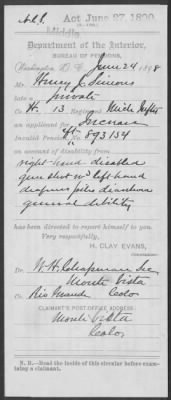 Act June 27, 1890.
Department of the Interior,
BUREAU OF PENSIONS,
Washington, D. C., June 24, 1898
Mr. Henry C. Simons
late a Private
Co. H. 13
an applicant for Increase
Invalid Pension No. 893134
on account of disability from
right hand disabled
gun shot wd left hand
piles diarrhoea
general debility
has been directed to report himself to you.
Very respectfully,
H. CLAY EVANS,
Commissioner.
Dr. W. H. Chapman Sec
Monte Vista
Co. Rio Grande Colo
CLAIMANT'S POST-OFFICE ADDRESS:
Monte Vista
Colo.
N. B.—Read the inside of this circular before exam-
ining a claimant.